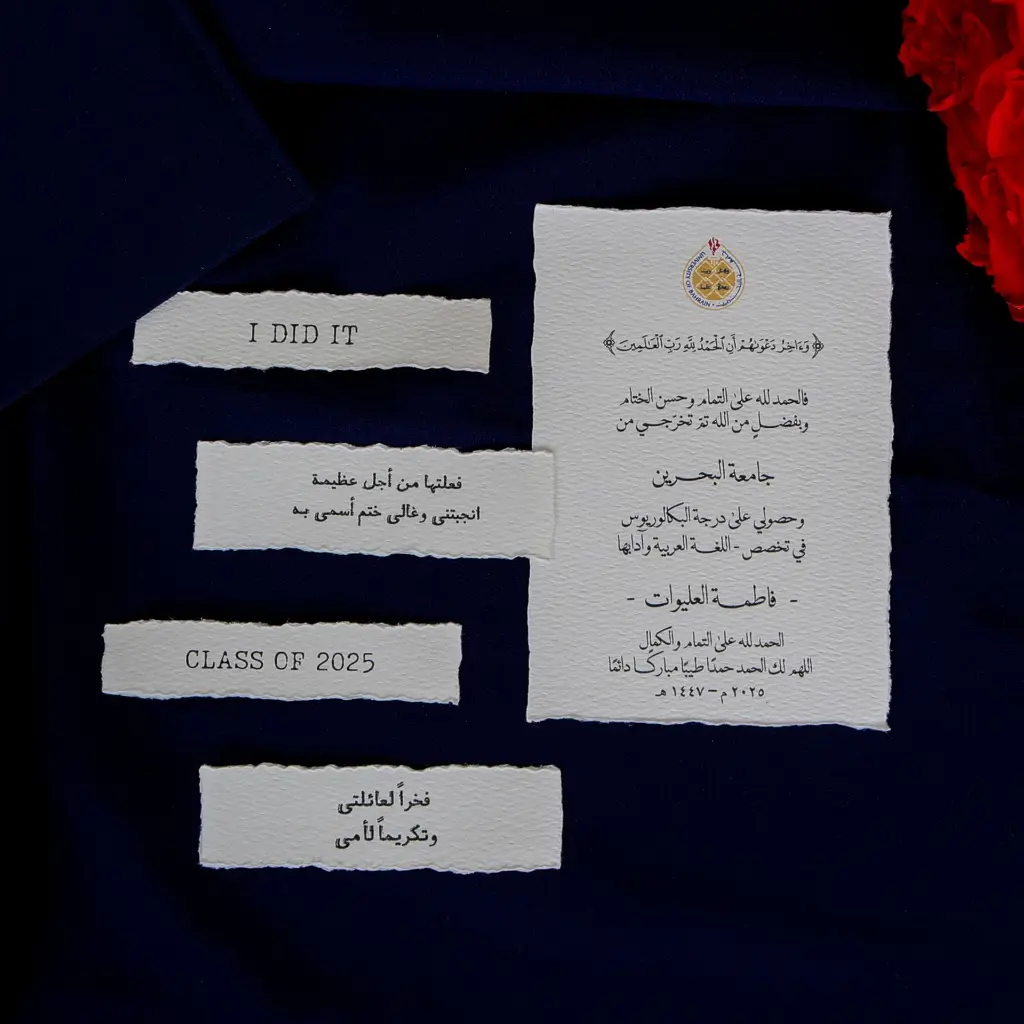 I DID IT
فعلتها من أجل عظيمة
انجبتني وغالي ختم أسمي به
CLASS OF 2025
فخراً لعائلتي
وتكريماً لأمي
UNIVERSITY OF BAHRAIN
﴿وَءَاخِرُ دَعْوَىٰهُمْ أَنِ ٱلْحَمْدُ لِلَّهِ رَبِّ ٱلْعَـٰلَمِينَ﴾
فالحمد لله على التمام وحسن الختام
وبفضلٍ من الله تمّ تخرّجي من
جامعة البحرين
وحصولي على درجة البكالوريوس
في تخصص - اللغة العربية وآدابها
- فاطمة العليوات -
الحمد لله على التمام والكمال
اللهم لك الحمد حمدًا طيبًا مباركًا دائمًا
٢٠٢٥ م – ١٤٤٧ هـ